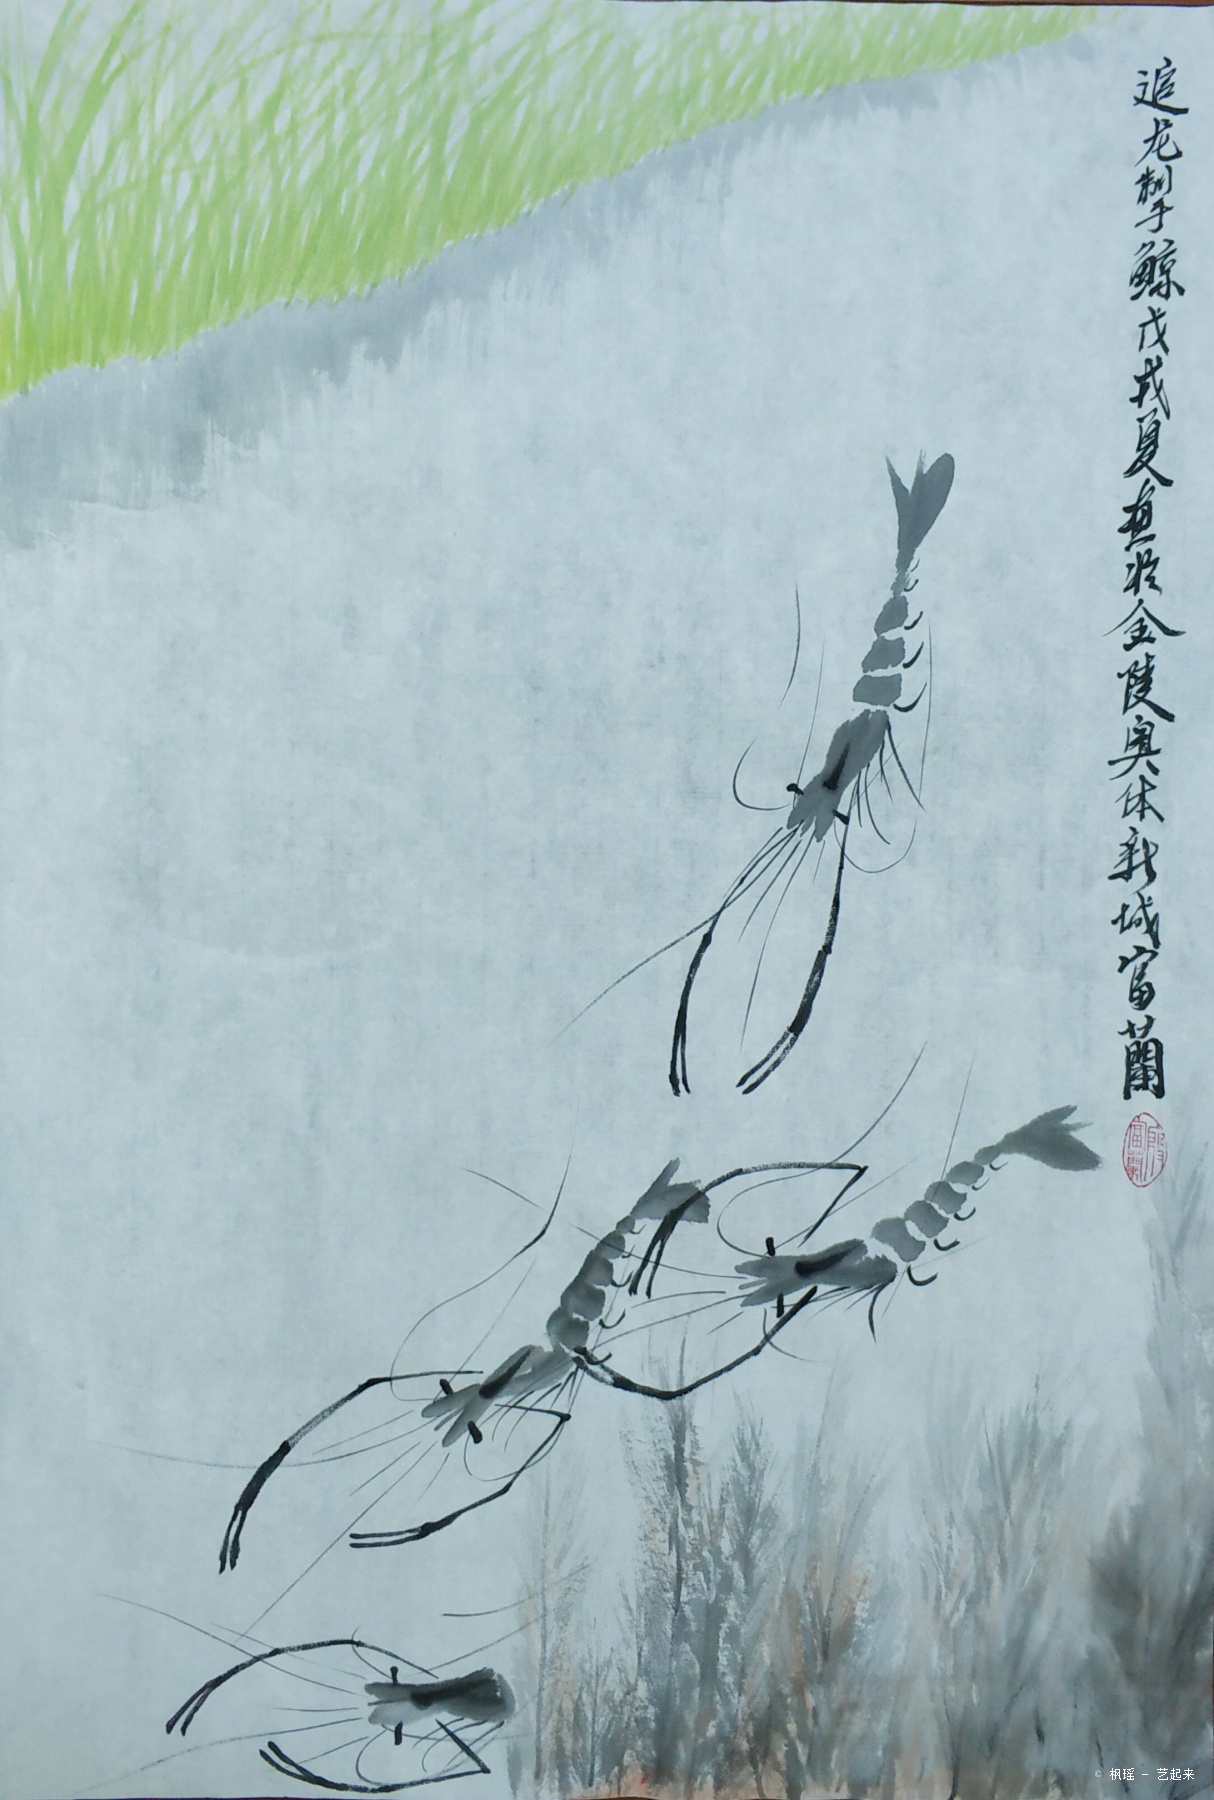 追龙掣鲸戊戌夏画於金陵奥体新城富蘭
© 枫瑶 - 艺起来